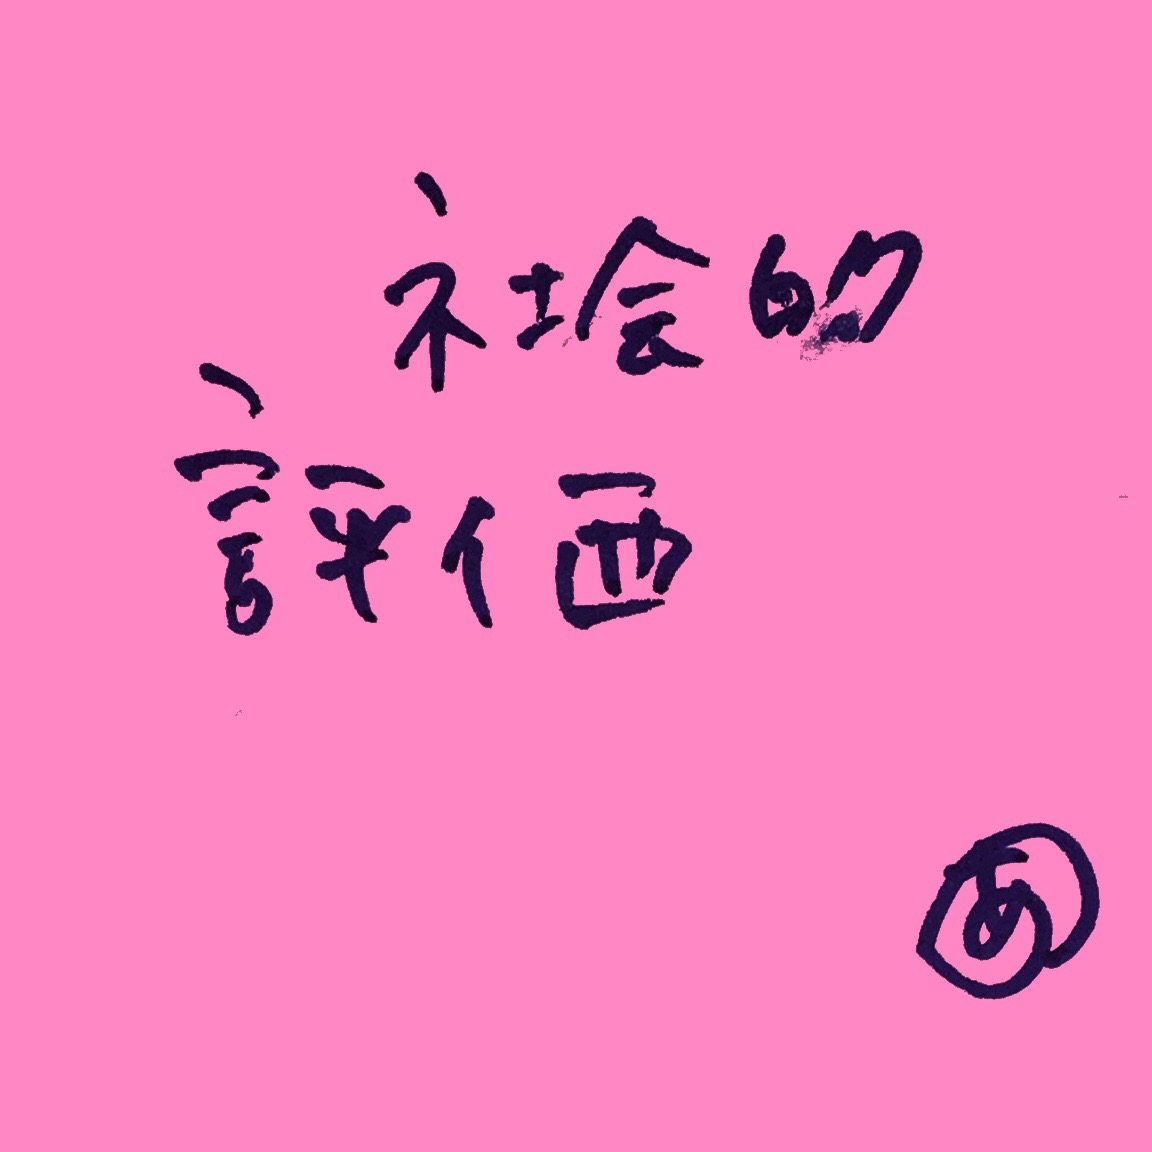 社会的
評価
あ